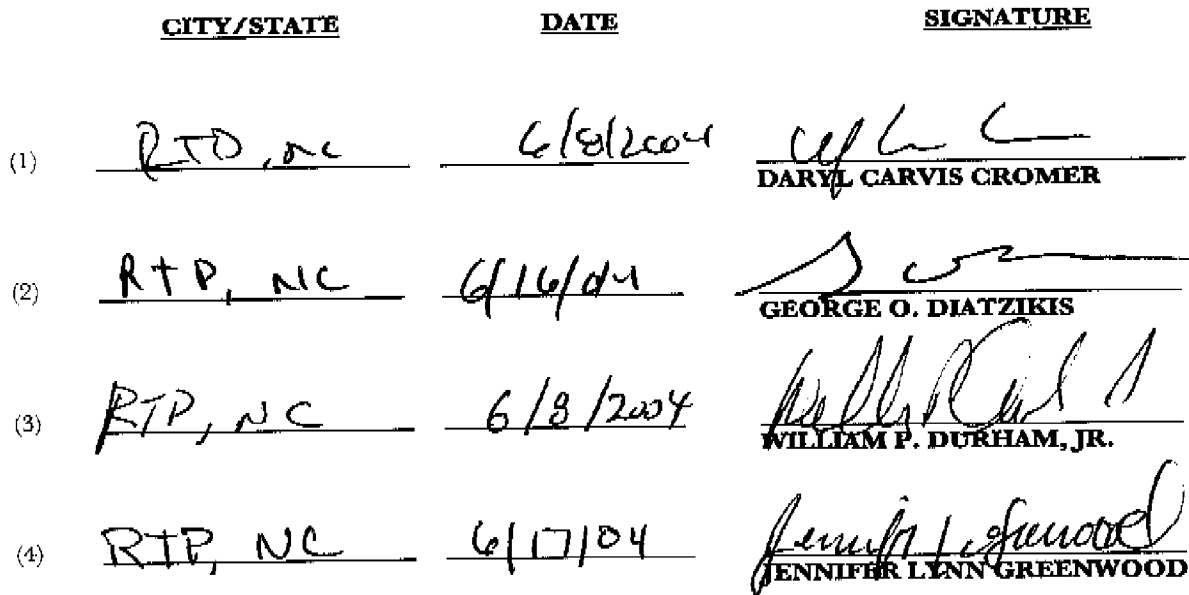 CITY/STATE DATE SIGNATURE
(1) RTP, NC 6/8/2004
DARYL CARVIS CROMER
(2) RTP, NC 6/16/04
GEORGE O. DIATZIKIS
(3) RTP, NC 6/8/2004
WILLIAM P. DURHAM, JR.
(4) RTP, NC 6/17/04 Jennifer L Greenwood
JENNIFER LYNN GREENWOOD